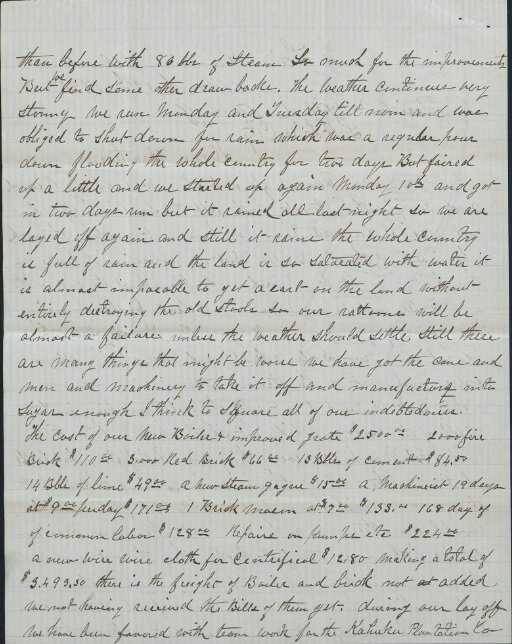 than before with 80 lbs of Steam So much for the improvements
But we find some other draw backs. The weather continues very
stormy we run Monday and Tuesday till noon and was
obliged to shut down for rain which was a regular pour
down flooding the whole country for two days But faired
up a little and we started up again Monday 10th and got
in two days run but it rained all last night so we are
layed off again and still it rains the whole country
is full of rain and the land is so saturated with water it
is almost impossable to get a cart on the land without
entirely destroying the old stools so our rattoons will be
almost a failure unless the weather should settle still there
are many things that might be worse we have got the cane and
men and machinery to take it off and manufactory into
sugar enough I think to square all of our indebtedness.
The cost of our New Boiler & improved grate $2500.00 2000 fire
Brick $110.00 3.000 Red Brick $66.00 13 Bbls of cement $84.50
14 Bbls of lime $49.00 a new steam gague $15.00 a Machinist 19 days
at $9.00 per day $171.00 1 Brick mason at $7.00 $133.00 168 days
of common labor $128.00 Repairs on pumps etc $224.00
a new wire wire cloth for Centrifical $12.80 making a total of
$3.493.30 there is the freight of Boiler and brick not as added
we not having received the Bills of them yet. during our lay off
we have been favored with team work for the Kahuku Plantation